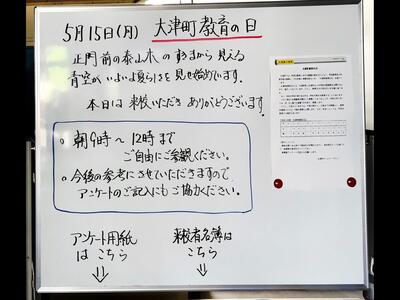 5月15日(月) 大津町教育の日
正門前の泰山木のすきまから見える
青空がいよいよ夏らしさを見せ始めています。
本日は来校いただきありがとうございます。
○ 朝9時〜12時まで
ご自由にご参観ください。
○ 今後の参考にさせていただきますので
アンケートのご記入にもご協力ください。
アンケート用紙
は こちら
⇓
来校者名簿は
こちら
⇓